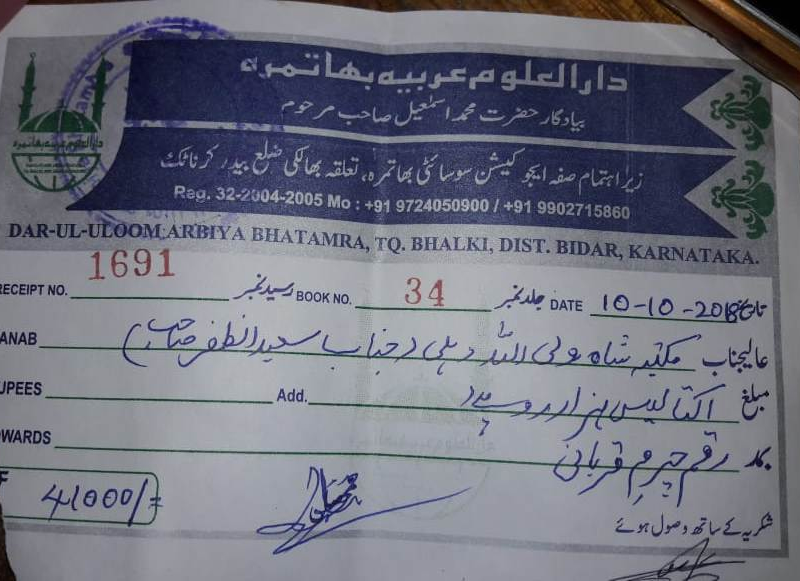 دارالعلوم عربیہ بھاتمرہ
بیادگار حضرت محمد اسمٰعیل صاحب مرحوم
زیر اہتمام صفہ ایجوکیشن سوسائٹی بھاتمرہ، تعلقہ بھالکی ضلع بیدر کرناٹک
Reg. 32-2004-2005 Mo : +91 9724050900 / +91 9902715860
دارالعلوم عربیہ بھاتمرہ
DAR-UL-ULOOM ARBIYA BHATAMRA, TQ. BHALKI, DIST. BIDAR, KARNATAKA.
RECEIPT NO. 1691 رسید نمبر BOOK NO. 34 جلد نمبر DATE 10-10-2018 تاریخ
ANAB عالیجناب مکتبہ شاہ ولی اللہ دہلی (جناب سعید الظفر صاحب)
UPEES Add. مبلغ اکتالیس ہزار روپیے
OWARDS بمد رقم چرم قربانی
F 41000/=
شکریہ کے ساتھ وصول ہوئے